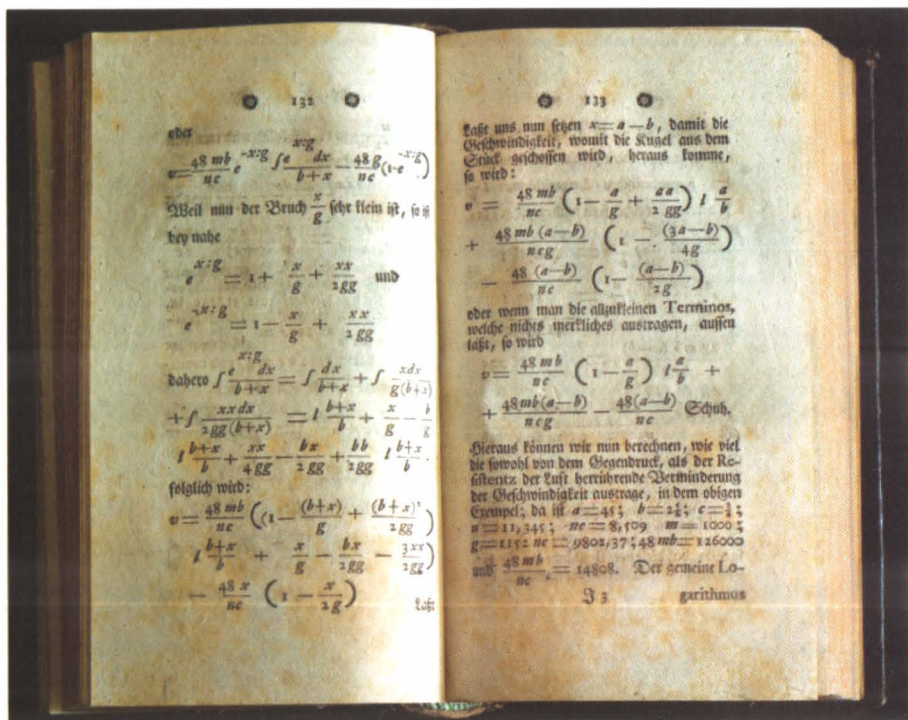 132
oder
v = 48 mb/nc e^-x:g ∫ e^x:g dx/b+x − 48 g/nc (1-e^-x:g)
Weil nun der Bruch x/g sehr klein ist, so ist
bey nahe
e^x:g = 1 + x/g + xx/2gg und
e^-x:g = 1 − x/g + xx/2gg
dahero ∫ e^x:g dx/b+x = ∫ dx/b+x + ∫ xdx/g(b+x)
+ ∫ xx dx/2gg(b+x) = l b+x/b + x/g − b/g
l b+x/b + xx/4gg − bx/2gg + bb/2gg l b+x/b.
folglich wird:
v = 48 mb/nc ((1 − (b+x)/g + (b+x)²/2gg)
l b+x/b + x/g − bx/2gg − 3xx/2gg)
− 48 x/nc (1 − x/2g)
Laßt
133
Laßt uns nun setzen x = a − b, damit die
Geschwindigkeit, womit die Kugel aus dem
Stück geschossen wird, heraus komme,
so wird:
v = 48 mb/nc (1 − a/g + aa/2gg) l a/b
+ 48 mb (a−b)/ncg (1 − (3a−b)/4g)
− 48 (a−b)/nc (1 − (a−b)/2g)
oder wenn man die allzukleinen Terminos,
welche nichts merkliches austragen, aussen
laßt, so wird
v = 48 mb/nc (1 − a/g) l a/b +
+ 48mb(a−b)/ncg − 48(a−b)/nc Schuh.
Hieraus können wir nun berechnen, wie viel
die sowohl von dem Gegendruck, als der Re-
sistentz der Luft herrührende Verminderung
der Geschwindigkeit austrage, in dem obigen
Exempel; da ist a=45; b=2⅝; c=¾;
n=11,345; nc=8,509 m=1000;
g=1152 nc=9802,37; 48 mb=126000
und 48 mb/nc. = 14808. Der gemeine Lo-
J 3 garithmus